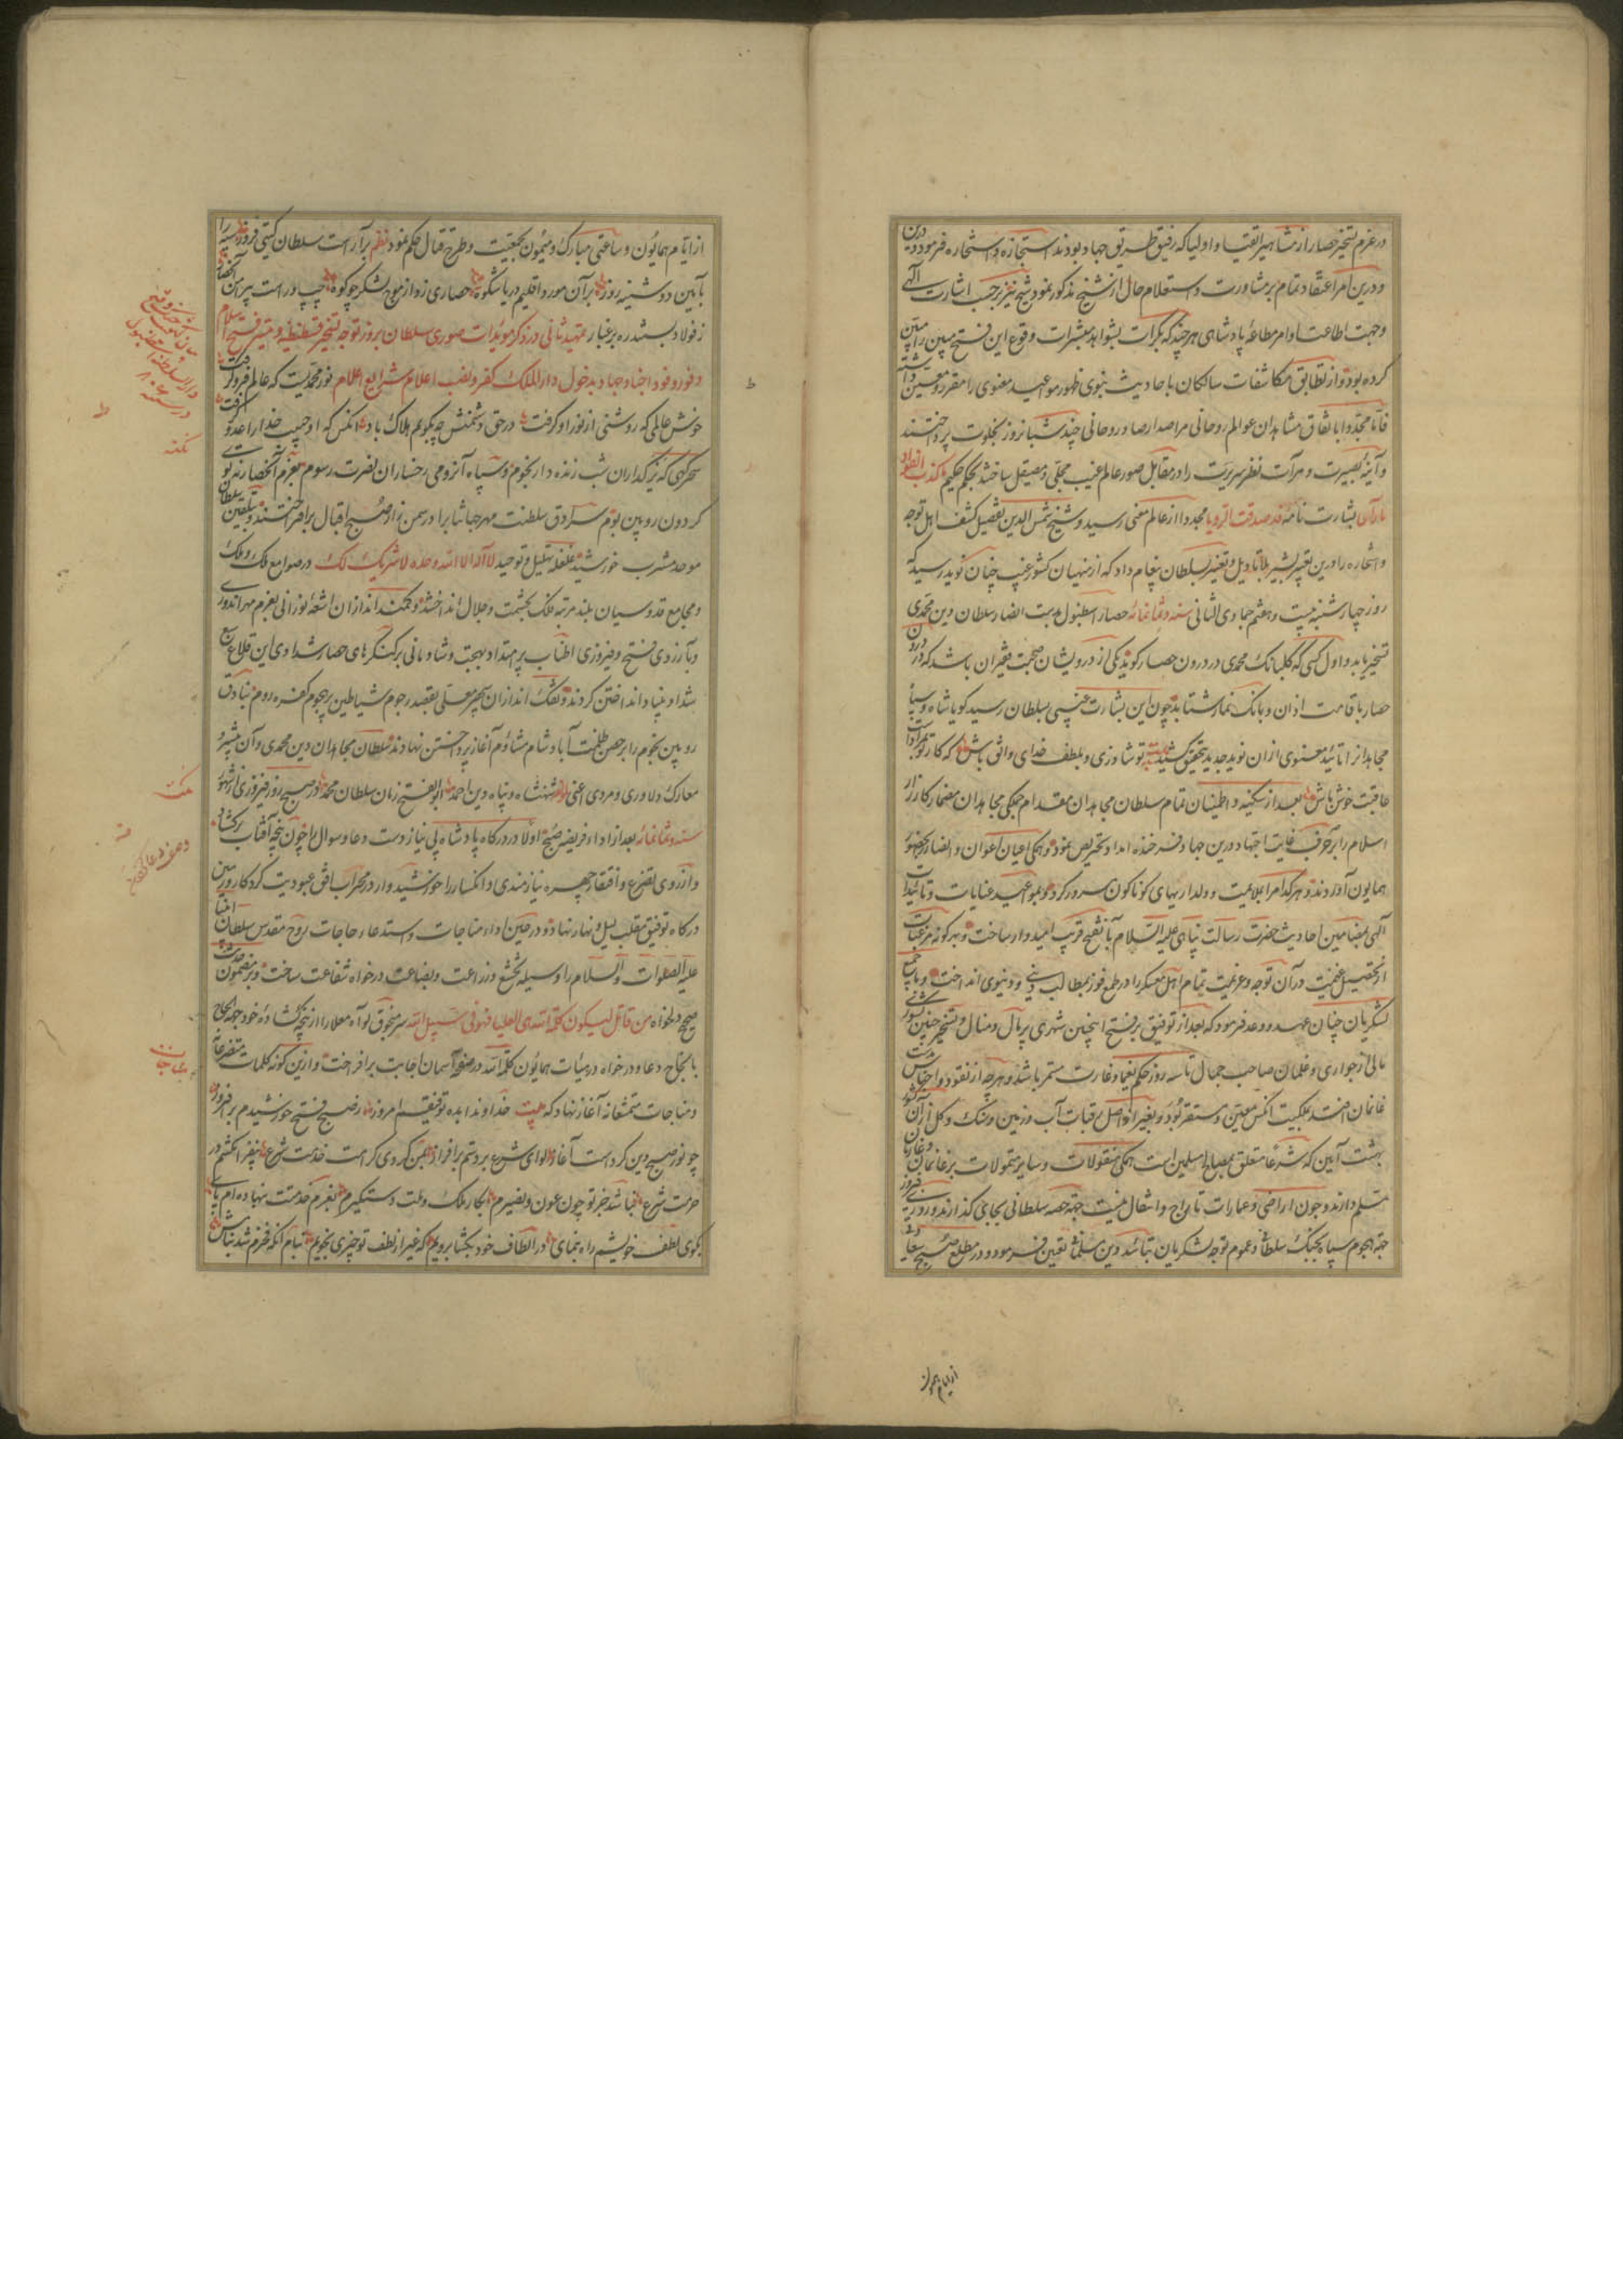 در عزم تسخیر حصار از مشاهیر اتقیا و اولیا که رفیق طریق جهاد بودند استجازه و استخاره فرمود و درین
و درین امر اعتقاد تمام بر مشاورت و استعلام حال از شیخ مذکور نمود شیخ نیز بر حسب اشارت الهی
و جهت اطاعت اوامر مطاعهٔ پادشاهی هر چند که بکرات بشواهد مبشرات وقوع این فتح مبین را متین
کرده بود و از تطابق مکاشفات سالکان با حادیث نبوی ظهور مواعید معنوی را مقرر و معین داشته
فاما مجددا باتفاق مشاهدان عوالم روحانی مراصد ارصاد روحانی چند شبانروز بخلوت پرداختند
و آینهٔ بصیرت و مرآت نظر سریرت را در مقابل صور عالم غیب مجلی و مصیقل ساختند بحکم حکیم ما کذب الفؤاد
ما رأی بشارت نامهٔ قد صدقت الرؤیا مجددا از عالم معنی رسید و شیخ شمس الدین تفصیل کشف اهل توجه
و استخاره را درین تعبیر بشیر بلا تاویل و تغییر بسلطان پیغام داد که از منهیان کشور غیب چنان نوید رسید که
روز چهارشنبه بیست و هفتم جمادی الثانی سنه و ثمانمائه حصار اسطنبول بدست انصار سلطان دین محمدی
تسخیر یابد و اول کسی که گلبانک محمدی در درون حصار کوید یکی از درویشان صحبت فقیران باشد که در درون
حصار باقامت اذان و بانک نماز شتابد چون این بشارت غیبی بسلطان رسید کویا شاه و سپاه
مجاهدانرا تائید معنوی ازان نوید جدید بتحقیق کشید بیت تو شاد زی و بلطف خدای واثق باش که کار تو بمراد است
عاقبت خوش باش بعد از سکینه و اطمینان تمام سلطان مجاهدان مقدام جمکی مجاهدان مضمار کارزار
اسلام را بر حرف غایت اجتهاد درین جهاد فرخنده امداد تحریص نمود و همکی اعیان اعوان و انصار بحضور
همایون آوردند و هر کدام را بملاعبت و دلداریهای کوناکون مسرور کرد و بمواعید عنایات و تائیدات
الهی بمضامین احادیث حضرت رسالت پناهی علیه السلام بآن فتح قریب امیدوار ساخت و بهر کونه مرغبات
از تحصیل غنیمت در آن توجه و عزیمت تمام اهل معسکر را در طمع فوز بمطالب دینی و دنیوی انداخت و با جمیع
لشکریان چنان عهد و وعد فرمود که بعد از توفیق بر فتح اینچنین شهری پر مال و منال و تسخیر چنین کشوری
مالی از جواری و غلمان صاحب جمال تا سه روز حکم یغما و غارت مستمر باشد و هر چه از نقود و اجناس بدست
غانمان افتد بملکیت آنکس معین و مستقر بود و بغیر از اصل رقبات آب و زمین و سنک و کل ازان کشور
بهشت آیین که شرعا متعلق بمصالح مسلمین است همکی منقولات و سایر متمولات بر غانمان
مسلم دارند و چون اراضی و عمارات تاراج و انتقال نیست جهة حصه سلطانی بجای گذارند و روز
جهة هجوم سپاه بجنک سلطانی و عموم توجه لشکریان بتائید دین مسلمانی تعیین فرمود و در مطلع صبح سعادت
از ایام همایون
از ایام همایون و ساعتی مبارک و میمون بحقیت و طرح قتال حکم نمود نظم بر آراست سلطان کیتی فروز سپه را
بآیین دوشنبه روز بر آن مورد اقلیم دریا شکوه حصاری زد از موج لشکر چو کوه چپ و راست پیرامن
ز فولاد بسته ره بر غبار تمهید ثانی در ذکر مویدات صوری سلطان بروز توجه تسخیر قسطنطنیه و تیسیر فتح اسلام
و فور وفود اجناد جهاد بدخول دار الملک کفر و نصب اعلام شرایع اسلام نور محمدیست که عالم فرو گرفت
خوش عالمی که روشنی از نور او گرفت در حق دشمنش چه بکویم هلاک باد آنکس که او حبیب خدا را عدو گرفت
سحرکهی که تیز گذاران شب زنده دار نجوم و سپاه آنزومی رخساران نصرت رسوم بعزم آنحصار نه توی
کردون رویین بوم سرادق سلطنت مهر جهانتاب را در سمن زار صبح اقبال برافراختند و بتلقین سلطان
موحد مشرب خورشید غلغله تهلیل و توحید لا اله الا الله وحده لا شریک لک در صوامع فلک و ملک
و مجامع قدوسیان بلند مرتبه ملک بحشمت و جلال انداختند و کمند اندازان اشعهٔ نورانی بعزم مهر اندوزی
و بآرزوی فتح و فیروزی اطناب پر امتداد بهجت و شادمانی بر کنکرهای حصار شدادی این قلاع سبع
شداد بنیاد انداختن کردند و تفک اندازان سپهر معلی بقصد رجوم شیاطین بر هجوم کفره روم بنادق
رویین نجوم را بر حصن ظلمت آباد شام مشاوم آغاز پرداختن نهادند سلطان مجاهدان دین محمدی و آن پیشرو
معارک دلاوری و مردی اعنی شهنشاه و پناه دین احمد ابو الفتح زمان سلطان محمد در صبح روز فیروزی از شهور
سنه و ثمانمائه بعد از اداء فریضهٔ صبح اولا در درگاه پادشاه بی نیاز دست دعا و سوال را چون پنجه آفتاب برکشاد
و از روی تضرع و افتقار چهره نیازمندی و انکسار را خورشیدوار در محراب افق عبودیت کردکار بر زمین
درکاه توفیق مقلب لیل و نهار نهاد و در حین اداء مناجات و استدعاء حاجات روح مقدس سلطان انبیا
علیه الصلوات والسلام را وسیله تخشع و زراعت و بضاعت درخواه شفاعت ساخت و بر مضمون حدیث
صحیح دلخواه من قاتل لیکون کلمة الله هی العلیا فهو فی سبیل الله سر منجوق لواء معلا را از پنجهٔ کشادهٔ خود جهة انجاح
بانجاح دعا و درخواه در هیئات همایون کلمة الله در صفحهٔ آسمان اجابت برافراخت و ازین کونه کلمات متضرعانه
و مناجات متخشعانه آغاز نهاد که بیت خداوندا بده توفیقم امروز ز صبح فتح خورشیدم برافروز
چو نور صبح دین کردست آغاز لوای شرع بر دستم برافراز بمن کردی کرامت خدمت شرع بنفر انکشتم در
حرمت شرع نباشد جز تو چون عون و نصیرم بکار ملک و ملت دستکیرم بعزم خدمتت بنهاده ام پای
بکوی لطف خویشم راه بنمای در الطاف خود بکشا برویم که غیر از لطف تو چیزی نجویم
نکته
مناجات